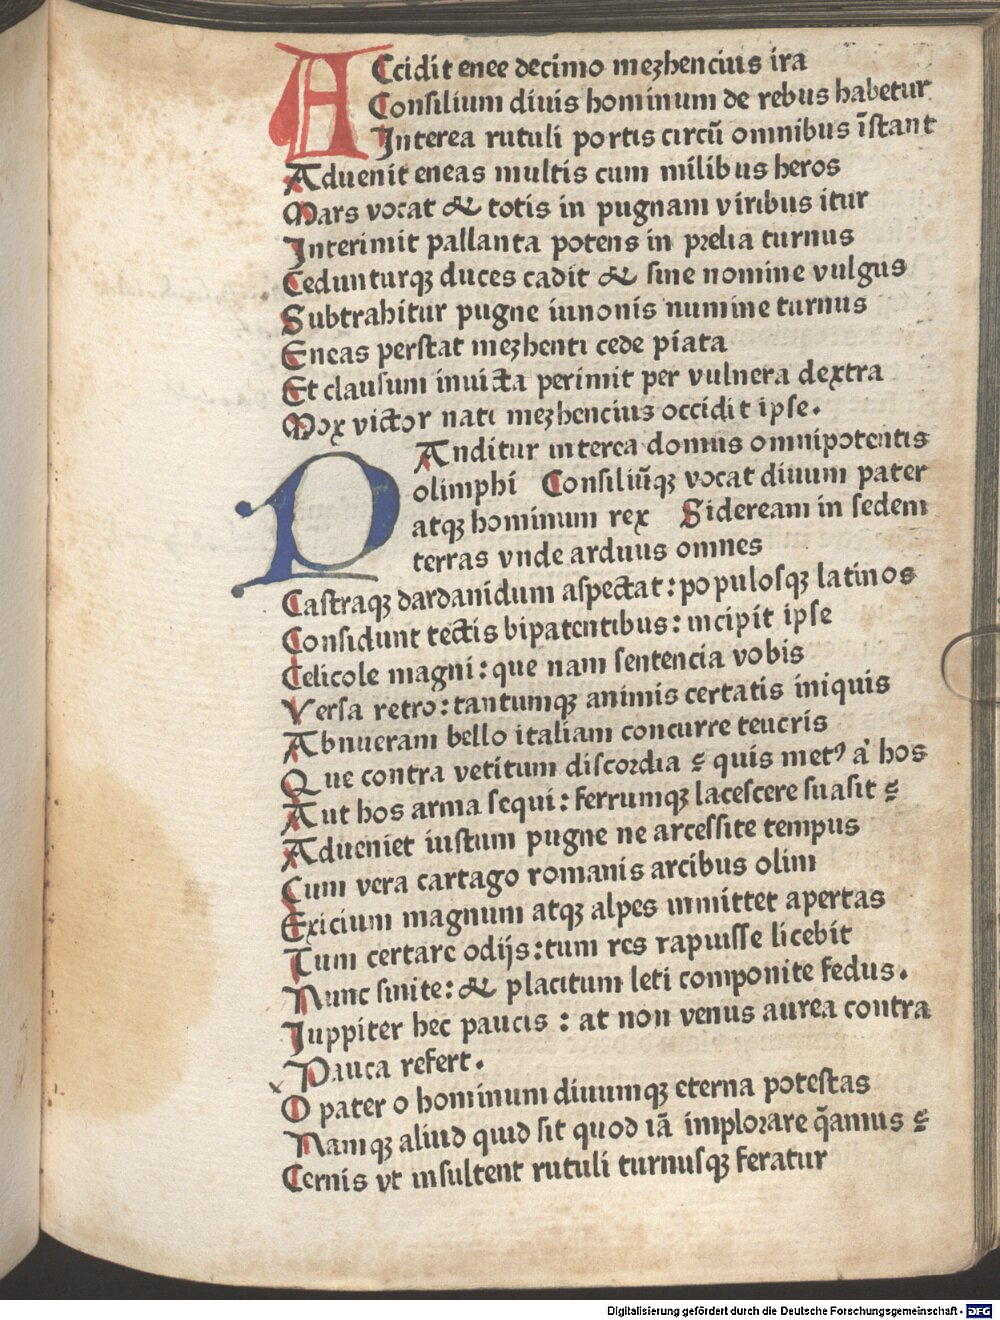 ACcidit enee decimo mezhencius ira
Consilium diuis hominum de rebus habetur
Interea rutuli portis circū omnibus īstant
Aduenit eneas multis cum milibus heros
Mars vocat & totis in pugnam viribus itur
Interimit pallanta potens in prelia turnus
Cedunturqꝫ duces cadit & sine nomine vulgus
Subtrahitur pugne iunonis numine turnus
Eneas perstat mezhenti cede piata
Et clausum inuicta perimit per vulnera dextra
Mox victor nati mezhencius occidit ipse.
PAnditur interea domus omnipotentis
olimphi Consiliūqꝫ vocat diuum pater
atqꝫ hominum rex Sideream in sedem
terras vnde arduus omnes
Castraqꝫ dardanidum aspectat: populosqꝫ latinos
Considunt tectis bipatentibus: incipit ipse
Celicole magni: que nam sentencia vobis
Versa retro: tantumqꝫ animis certatis iniquis
Abnueram bello italiam concurre teucris
Que contra vetitum discordia ꝛ quis metꝰ aͭ hos
Aut hos arma sequi: ferrumqꝫ lacescere suasit ꝛ
Adueniet iustum pugne ne arcessite tempus
Cum vera cartago romanis arcibus olim
Exicium magnum atqꝫ alpes inmittet apertas
Tum certare odijs: tum res rapuisse licebit
Nunc sinite: & placitum leti componite fedus.
Iuppiter hec paucis: at non venus aurea contra
Pauca refert.
O pater o hominum diuumqꝫ eterna potestas
Namqꝫ aliud quid sit quod iā implorare q̄amus ꝛ
Cernis vt insultent rutuli turnusqꝫ feratur
Digitalisierung gefördert durch die Deutsche Forschungsgemeinschaft - DFG